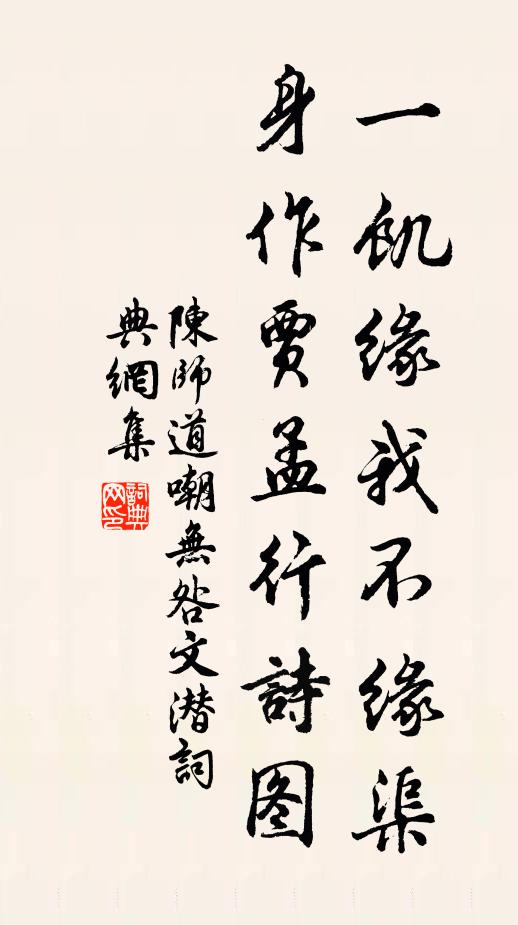 一飢缘我不缘渠
身作賈孟行詩图
陳師道嘲無咎文潜詞
典網集
詞典
网印